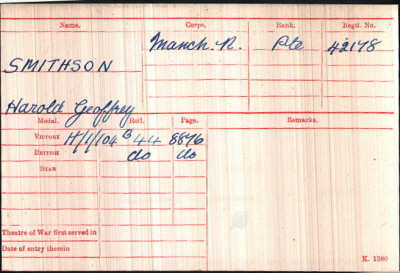 Name. Corps. Rank. Regtl. No.
SMITHSON Manch. R. Pte 42178
Harold Geoffrey
Medal. Roll. Page. Remarks.
VICTORY H/1/104 B44 8876
BRITISH do do
STAR
Theatre of War first served in
Date of entry therein
K. 1380